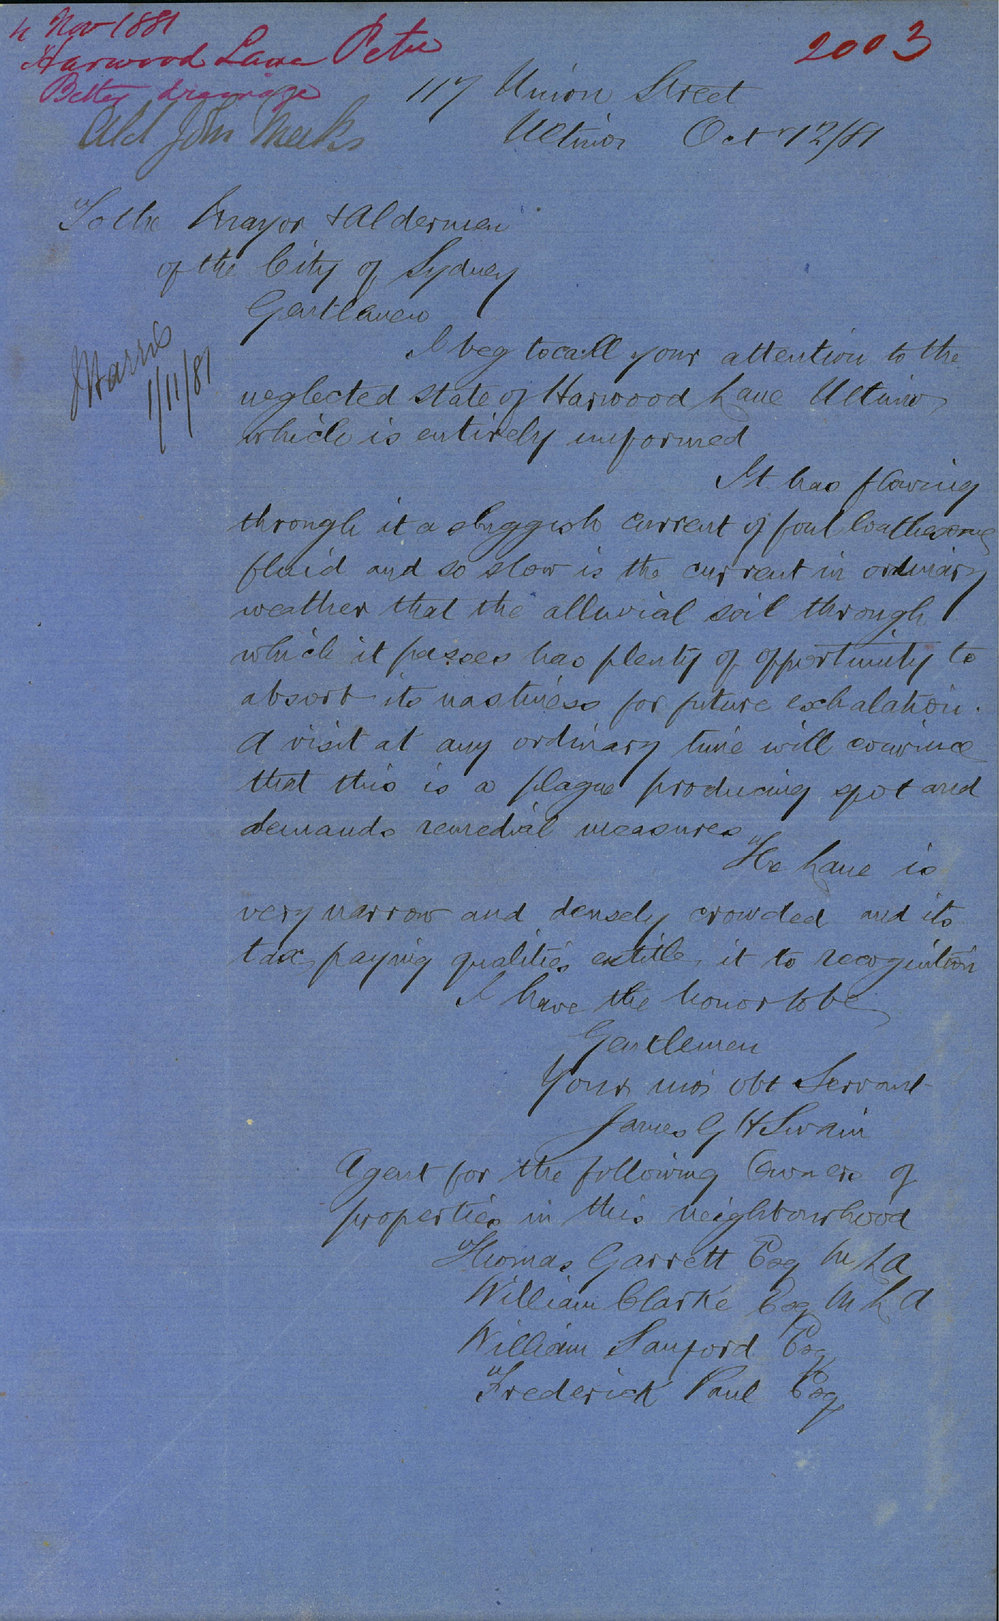 4 Nov 1881
Harwood Lane Petn
Better drainage
2003
Ald John Meeks
117 Union Street
Ultimo Oct 12/81
To the Mayor & Aldermen
of the City of Sydney
Gentlemen
I beg to call your attention to the
neglected state of Harwood Lane Ultimo
which is entirely unformed
It has flowing
through it a sluggish current of foul loathsome
fluid and so slow is the current in ordinary
weather that the alluvial soil through
which it passes has plenty of opportunity to
absorb its nastiness for future exhalation.
A visit at any ordinary time will convince
that this is a plague producing spot and
demands remedial measures
The Lane is
very narrow and densely crowded and its
tax paying qualities entitle it to recognition
I have the honor to be
Gentlemen
Your mos obt Servant
James G H Swain
Agent for the following Owners of
properties in this neighbourhood
Thomas Garrett Esq M L A
William Clarke Esq M L A
William Sanford Esq
Frederick Paul Esq
J Harris
1/11/81